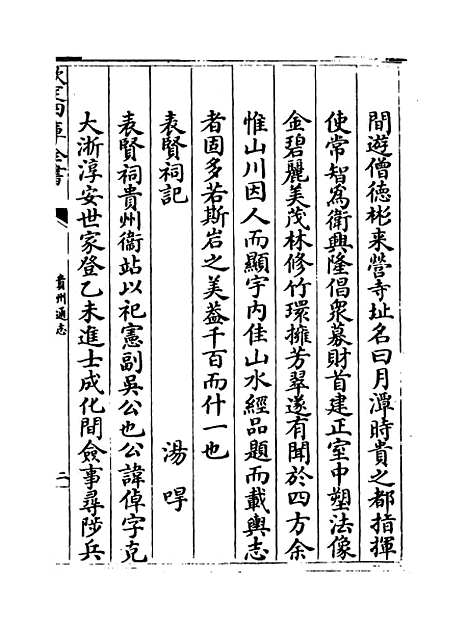 間遊僧德彬来營寺址名曰月潭時貴之都指揮
使常智為衛興隆倡衆募財首建正室中塑法像
金碧麗美茂林修竹環擁芳翠遂有聞於四方余
惟山川因人而顯宇内佳山水經品題而載輿志
者固多若斯岩之美葢千百而什一也
表賢祠記　湯㖔
表賢祠貴州衞站以祀憲副吳公也公諱倬字克
大浙淳安世家登乙未進士成化間僉事尋陟兵
欽定四庫全書
貴州通志